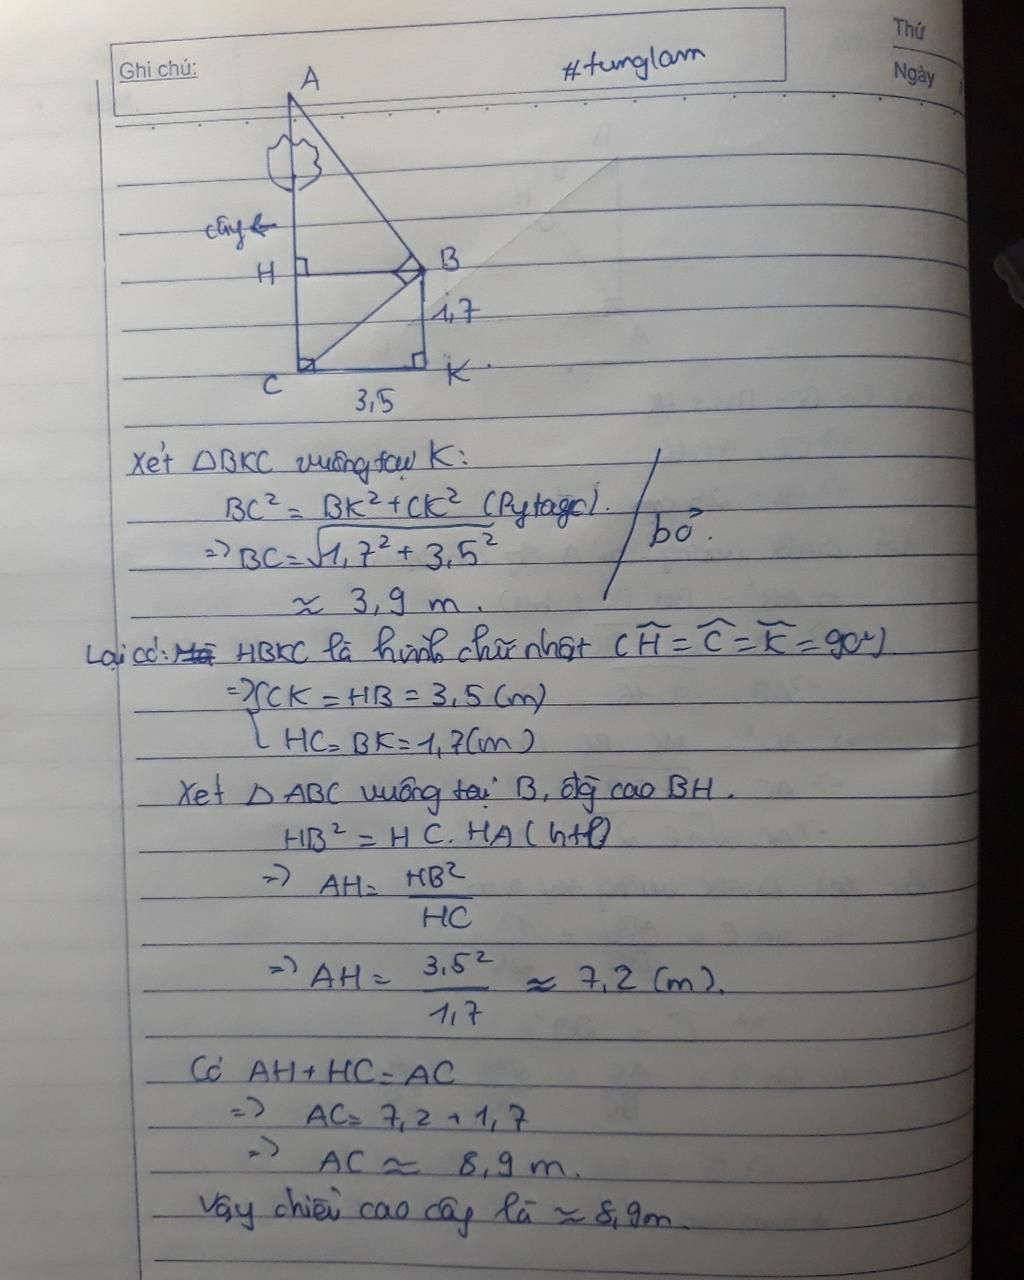 Thứ
Ghi chú: #tunglam
Ngày
A
cây ←
H B
1,7
C K
3,5
Xét △BKC vuông tại K:
BC² = BK² + CK² (Pytago).
=> BC = √1,7² + 3,5²
bỏ.
≈ 3,9 m.
Lại có: HBKC là hình chữ nhật (Ĥ = Ĉ = K̂ = 90°)
=> { CK = HB = 3,5 (m)
HC = BK = 1,7 (m)
Xét △ ABC vuông tại B, đg cao BH.
HB² = HC. HA (htl)
=> AH = HB²
HC
=> AH = 3,5² ≈ 7,2 (m).
1,7
Có AH + HC = AC
=> AC = 7,2 + 1,7
=> AC ≈ 8,9 m.
Vậy chiều cao cây là ≈ 8,9m.